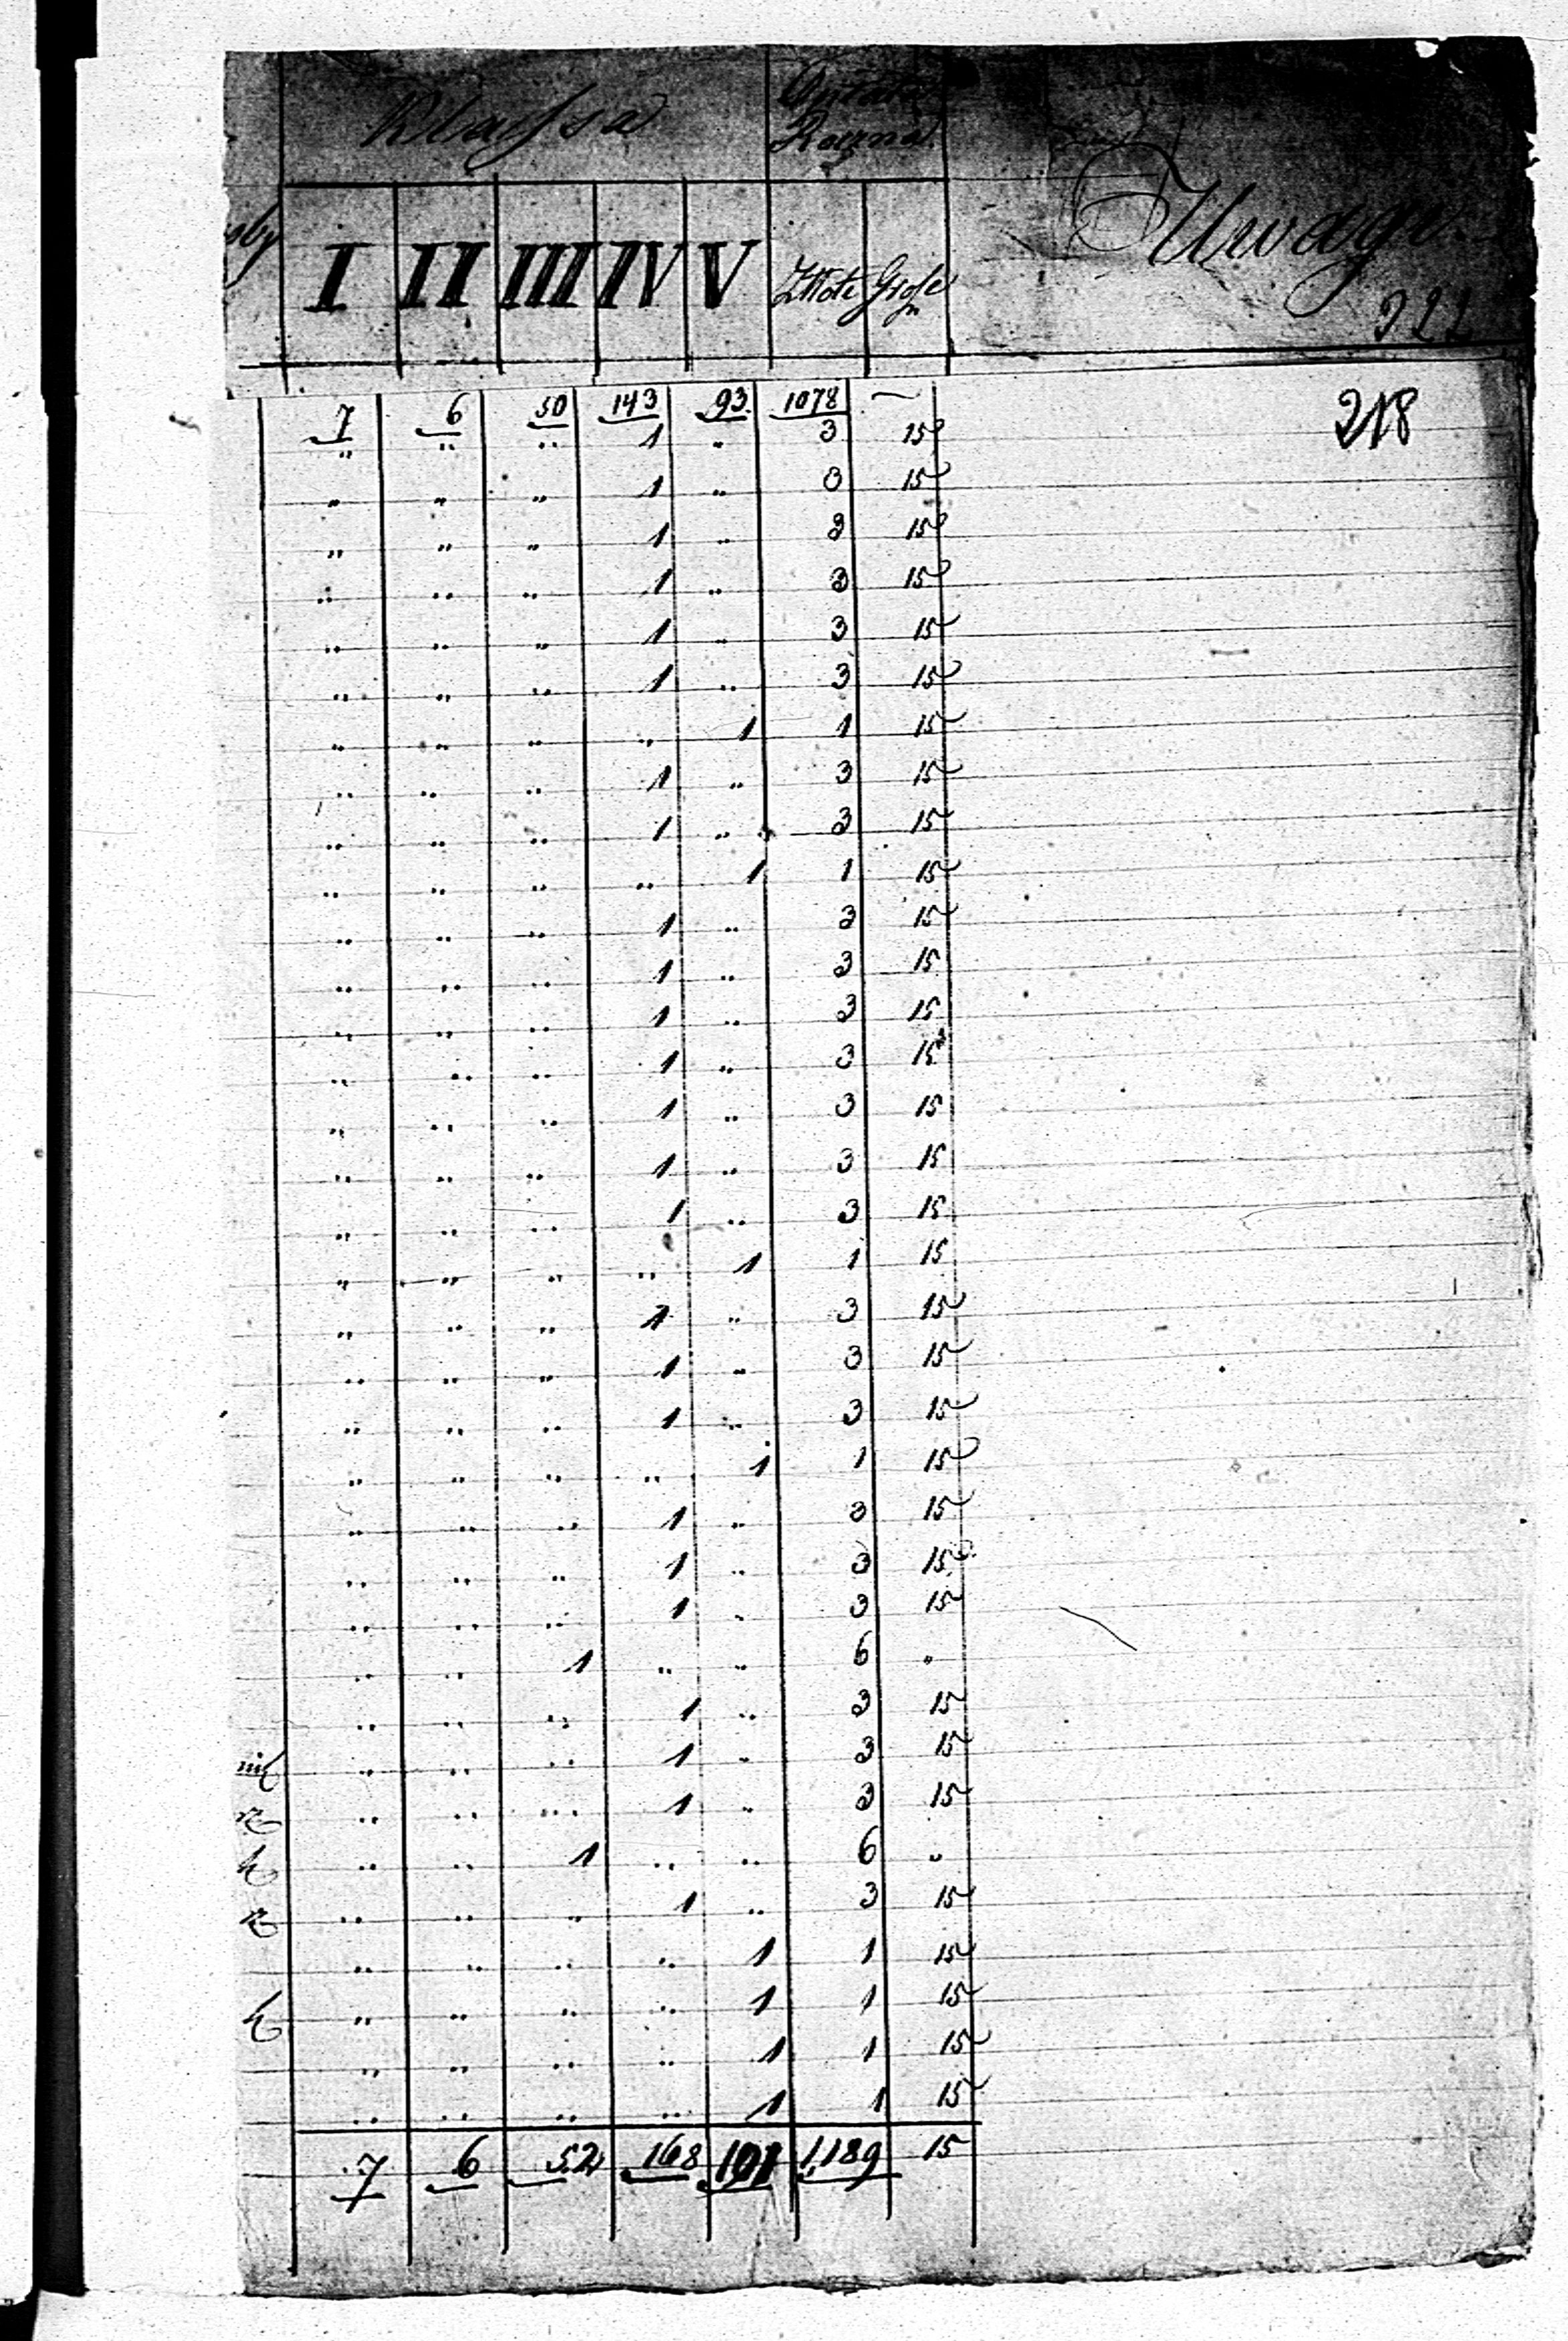 Klassa Opłata Roczna Uwagi.
I II III IV V Złote Grosze
322
7 6 50 143 93. 1078 —
218
" " " 1 " 3 15
" " " 1 " 3 15
" " " 1 " 3 15
" " " 1 " 3 15
" " " 1 " 3 15
" " " 1 " 3 15
" " " " 1 1 15
" " " 1 " 3 15
" " " 1 " 3 15
" " " " 1 1 15
" " " 1 " 3 15
" " " 1 " 3 15
" " " 1 " 3 15
" " " 1 " 3 15
" " " 1 " 3 15
" " " 1 " 3 15
" " " 1 " 3 15
" " " " 1 1 15
" " " 1 " 3 15
" " " 1 " 3 15
" " " 1 " 3 15
" " " " 1 1 15
" " " 1 " 3 15
" " " 1 " 3 15
" " " 1 " 3 15
" " 1 " " 6 "
" " " 1 " 3 15
" " " 1 " 3 15
" " " 1 " 3 15
" " 1 " " 6 "
" " " 1 " 3 15
" " " " 1 1 15
" " " " 1 1 15
" " " " 1 1 15
" " " " 1 1 15
7 6 52 168 101 1,189 15